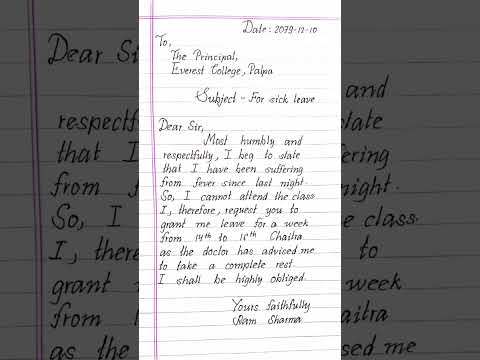 Date: 2079-12-10
To,
The Principal,
Everest College, Palpa
Subject - For sick leave
Dear Sir,
Most humbly and
respectfully, I beg to state
that I have been suffering
from fever since last night.
So, I cannot attend the class
I, therefore, request you to
grant me leave for a week
from 14th to 18th Chaitra
as the doctor has advised me
to take a complete rest
I shall be highly obliged.
Yours faithfully
Ram Sharma